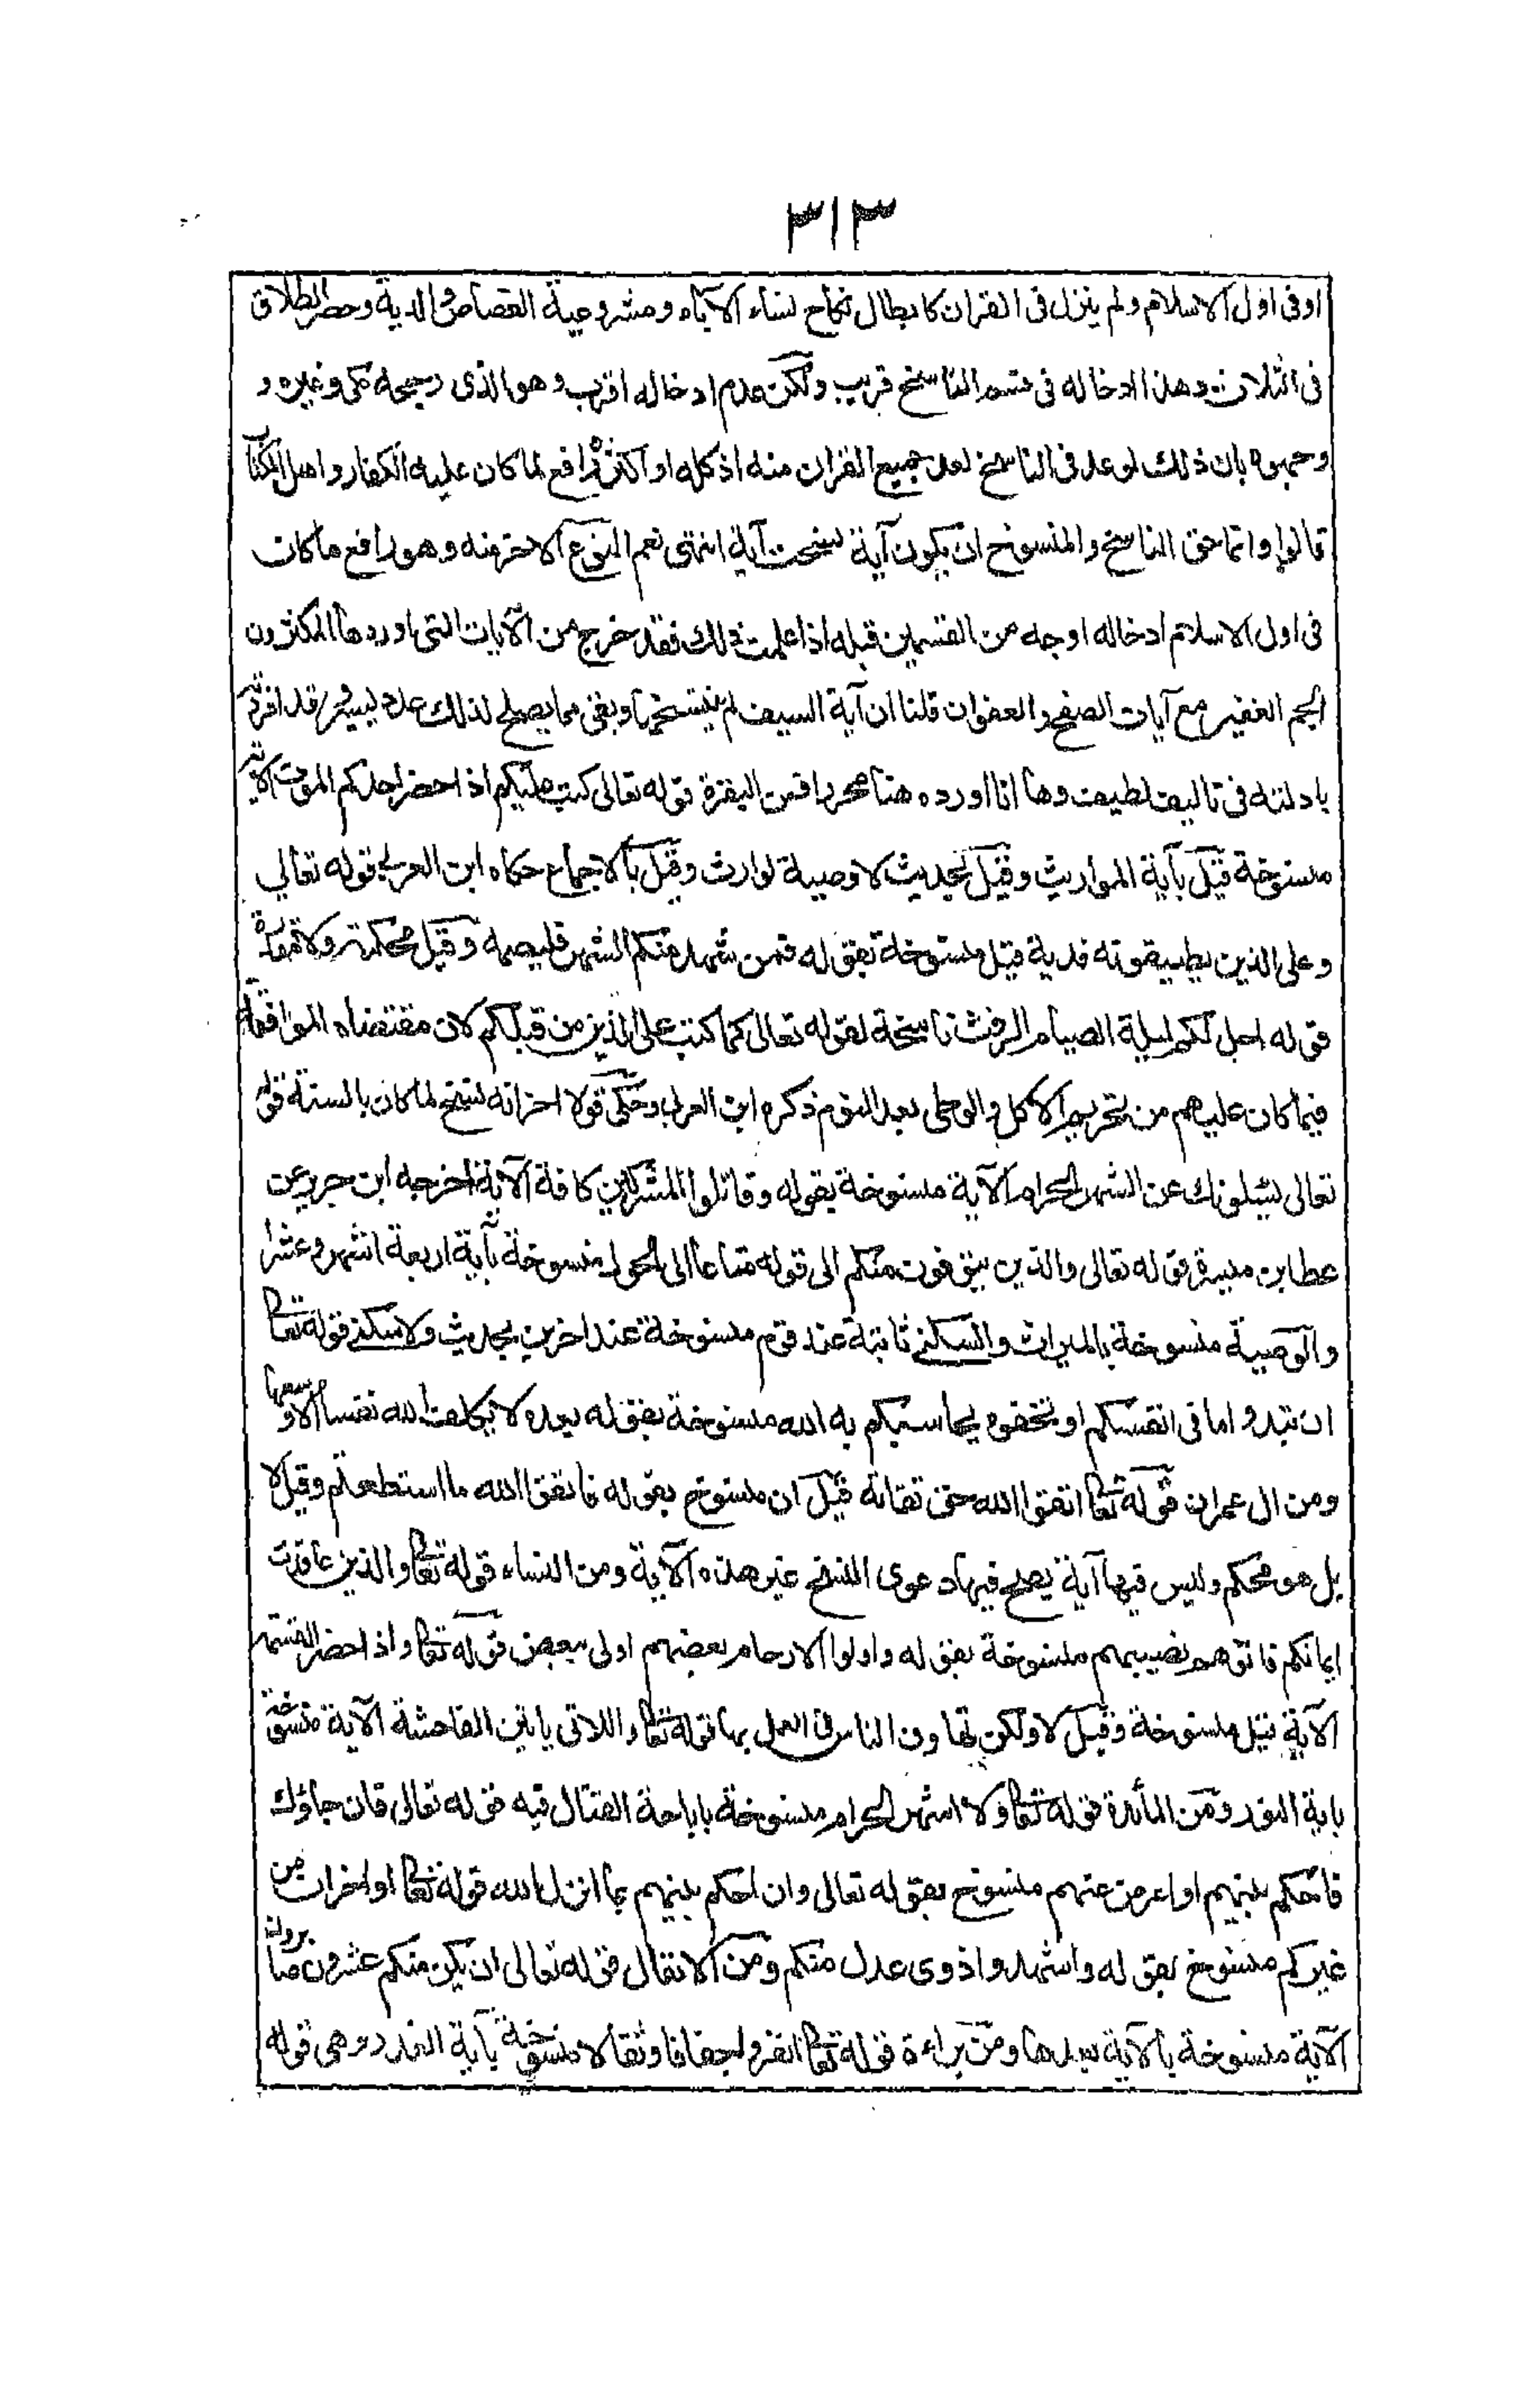 ٣١٣
او فى اول الاسلام ولم ينزل فى القران كابطال نكاح نساء الآباء ومشروعية القصاص والدية وحصر الطلاق
فى الثلاث وهذا ادخاله فى قسم الناسخ قريب ولكن عدم ادخاله اقرب وهو الذى رجحه مكى وغيره و
وجهوه بان ذلك لو عد فى الناسخ لعد جميع القران منه اذ كله او اكثره رافع لما كان عليه الكفار واهل الكتاب
قالوا وانما حق الناسخ والمنسوخ ان يكون آية نسخت آية انتهى نعم النوع الاخر منه وهو رافع ما كان
فى اول الاسلام ادخاله اوجه من القسمين قبله اذا علمت ذلك فقد خرج من الآيات التى اوردها المكثرون
الجم الغفير مع آيات الصفح والعفو ان قلنا ان آية السيف لم ينسخها وبقى مما يصلح لذلك عدد يسير وقد افردته
بادلته فى تاليف لطيف وها انا اورده هنا محررا فمن البقرة قوله تعالى كتب عليكم اذا حضر احدكم الموت الآية
منسوخة قيل بآية المواريث وقيل بحديث لا وصية لوارث وقيل بالاجماع حكاه ابن العربى قوله تعالى
وعلى الذين يطيقونه فدية قيل منسوخة بقوله فمن شهد منكم الشهر فليصمه وقيل محكمة ولا مقدرة
قوله احل لكم ليلة الصيام الرفث ناسخة لقوله تعالى كما كتب على الذين من قبلكم لان مقتضاه الموافقة
فيما كان عليهم من تحريم الاكل والوطى بعد النوم ذكره ابن العربى وحكى قولا اخر انه نسخ لما كان بالسنة قوله
تعالى يسئلونك عن الشهر الحرام الآية منسوخة بقوله وقاتلوا المشركين كافة الآية اخرجه ابن جرير عن
عطا بن ميسرة قوله تعالى والذين يتوفون منكم الى قوله متاعا الى الحول منسوخة بآية اربعة اشهر وعشرا
والوصية منسوخة بالميراث والسكنى ثابتة عند قوم منسوخة عند اخرين بحديث ولا سكنى قوله تعالى
ان تبدوا ما فى انفسكم او تخفوه يحاسبكم به الله منسوخة بقوله بعده لا يكلف الله نفسا الا وسعها
ومن ال عمران قوله تعالى اتقوا الله حق تقاته قيل ان منسوخ بقوله فاتقوا الله ما استطعتم وقيل لا
بل هو محكم وليس فيها آية يصلح فيها دعوى النسخ غير هذه الآية ومن النساء قوله تعالى والذين عاقدت
ايمانكم فاتوهم نصيبهم منسوخة بقوله واولوا الارحام بعضهم اولى ببعض قوله تعالى واذا حضر القسمة
الآية قيل منسوخة وقيل لا ولكن تهاون الناس فى العمل بها قوله تعالى واللاتى ياتين الفاحشة الآية منسوخة
باية النور ومن المائدة قوله تعالى ولا الشهر الحرام منسوخة باباحة القتال فيه قوله تعالى فان جاؤك
فاحكم بينهم او اعرض عنهم منسوخ بقوله تعالى وان احكم بينهم بما انزل الله قوله تعالى او اخران من
غيركم منسوخ بقوله واشهدوا ذوى عدل منكم ومن الانفال قوله تعالى ان يكن منكم عشرون صابرون
الآية منسوخة بالآية بعدها ومن براءة قوله تعالى انفروا خفافا وثقالا منسوخة بآية العذر وهى قوله